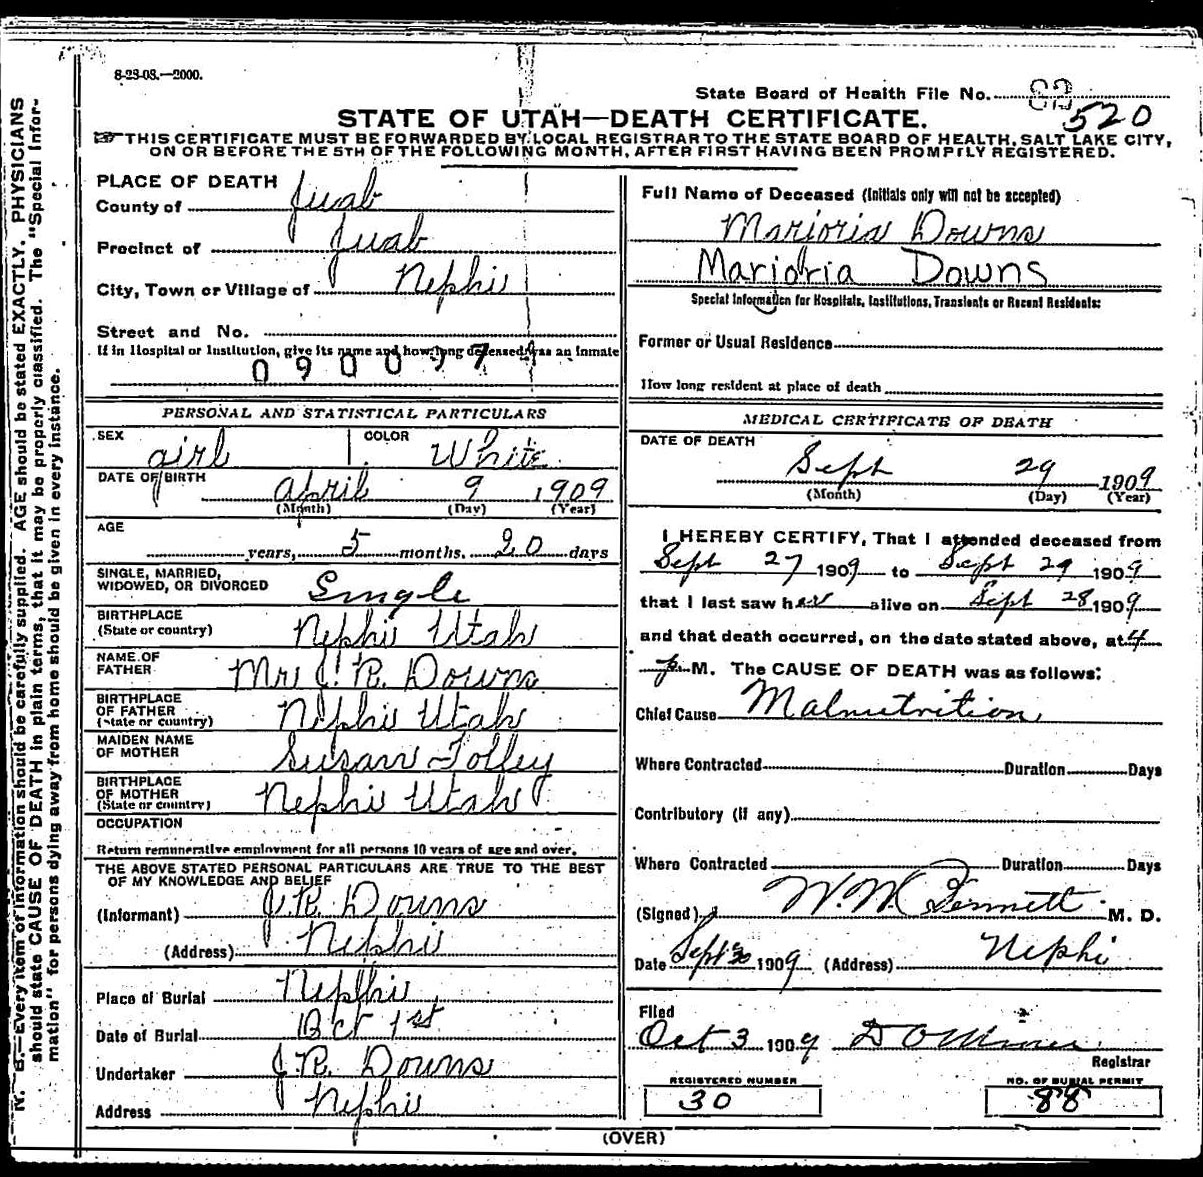 8-23-08.—2000.
State Board of Health File No. 520
STATE OF UTAH—DEATH CERTIFICATE.
THIS CERTIFICATE MUST BE FORWARDED BY LOCAL REGISTRAR TO THE STATE BOARD OF HEALTH, SALT LAKE CITY,
ON OR BEFORE THE 5TH OF THE FOLLOWING MONTH, AFTER FIRST HAVING BEEN PROMPTLY REGISTERED.
PLACE OF DEATH
County of Juab
Precinct of Juab
City, Town or Village of Nephi
Street and No.
If in Hospital or Institution, give its name and how long deceased was an inmate
PERSONAL AND STATISTICAL PARTICULARS
SEX girl COLOR White
DATE OF BIRTH April 9 1909
(Month) (Day) (Year)
AGE
years, 5 months. 20 days
SINGLE, MARRIED,
WIDOWED, OR DIVORCED Single
BIRTHPLACE
(State or country) Nephi Utah
NAME OF
FATHER Mr J. R. Downs
BIRTHPLACE
OF FATHER
(State or country) Nephi Utah
MAIDEN NAME
OF MOTHER Susan Tolley
BIRTHPLACE
OF MOTHER
(State or country) Nephi Utah
OCCUPATION
Return remunerative employment for all persons 10 years of age and over.
THE ABOVE STATED PERSONAL PARTICULARS ARE TRUE TO THE BEST
OF MY KNOWLEDGE AND BELIEF
(Informant) J. R. Downs
(Address) Nephi
Place of Burial Nephi
Date of Burial Oct 1st
Undertaker J. R. Downs
Address Nephi
Full Name of Deceased (Initials only will not be accepted)
Marjoria Downs
Marjoria Downs
Special Information for Hospitals, Institutions, Transients or Recent Residents:
Former or Usual Residence
How long resident at place of death
MEDICAL CERTIFICATE OF DEATH
DATE OF DEATH
Sept 29 1909
(Month) (Day) (Year)
I HEREBY CERTIFY, That I attended deceased from
Sept 27 1909 to Sept 29 1909
that I last saw her alive on Sept 28 1909
and that death occurred, on the date stated above, at 4
p. M. The CAUSE OF DEATH was as follows:
Chief Cause Malnutrition
Where Contracted Duration Days
Contributory (if any)
Where Contracted Duration Days
(Signed) W. M. M. D.
Date Sept 30 1909 (Address) Nephi
Filed
Oct 3 1909
Registrar
REGISTERED NUMBER
30
NO. OF BURIAL PERMIT
88
(OVER)
N. B.—Every item of information should be carefully supplied. AGE should be stated EXACTLY. PHYSICIANS
should state CAUSE OF DEATH in plain terms, that it may be properly classified. The "Special Infor-
mation" for persons dying away from home should be given in every instance.